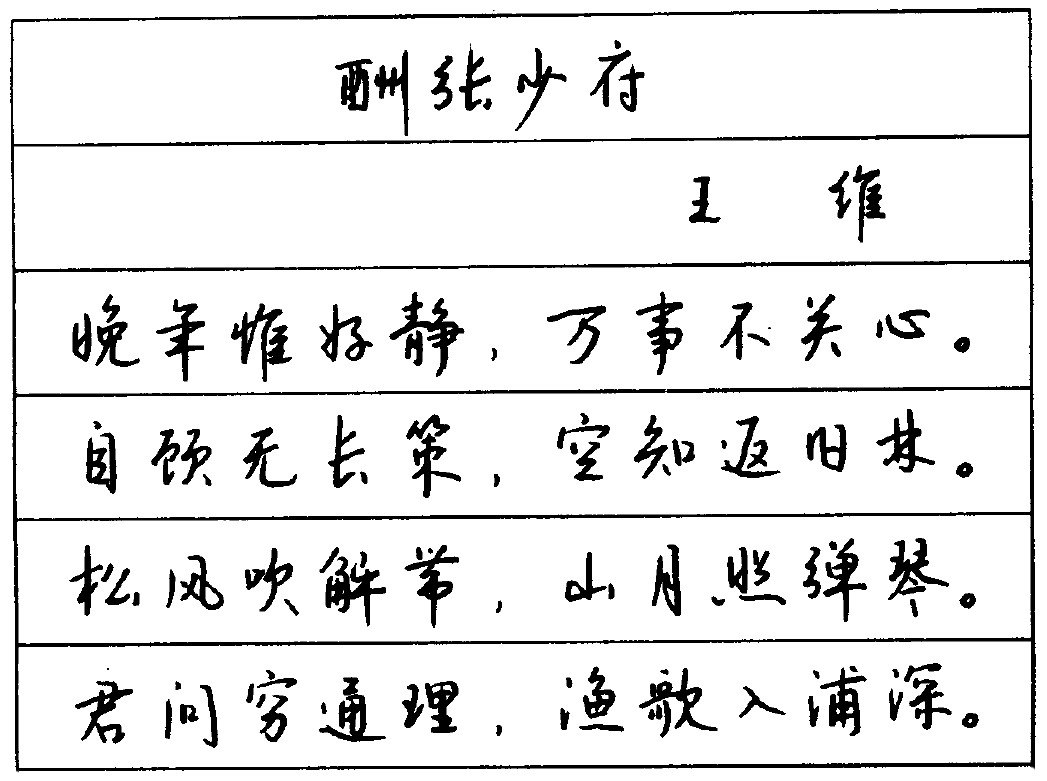 酬张少府
王 维
晚年惟好静，万事不关心。
自顾无长策，空知返旧林。
松风吹解带，山月照弹琴。
君问穷通理，渔歌入浦深。